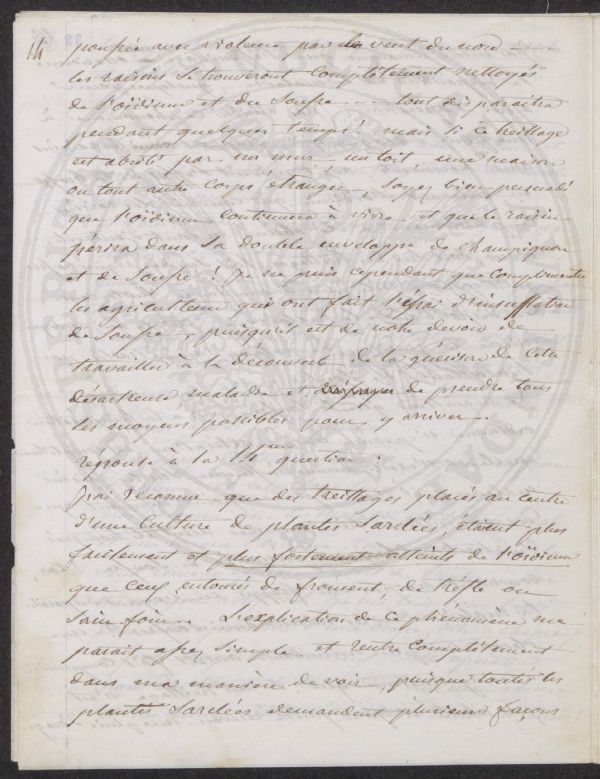 14
poussée avec violence par le vent du nord —
les raisins se trouveront complètement nettoyés
de l'oïdium et du soufre — tout disparaitra
pendant quelques temps! mais si ce treillage
est abrité par un mur, un toit, une maison
ou tout autre corps étranger, soyez bien persuadé
que l'oïdium continuera à vivre et que le raisin
périra dans sa double enveloppe de champignon
et de soufre! Je ne puis cependant que complimenter
les agriculteurs qui ont fait l'essai d'insufflation
de soufre, puisqu'il est de notre devoir de
travailler à la découverte de la guérison de cette
désastreuse maladie et de prendre tous
les moyens possibles pour y arriver.
réponse à la 14 question:
J'ai reconnu que des treillages placés au centre
d'une culture de plantes sarclées, étaient plus
facilement et plus fortement atteints de l'oïdium
que ceux entourés de froment, de trèfle ou
sain foin. L'explication de ce phénomène me
parait assez simple et rentre complètement
dans ma manière de voir, puisque toutes les
plantes sarclées demandent plusieurs façons